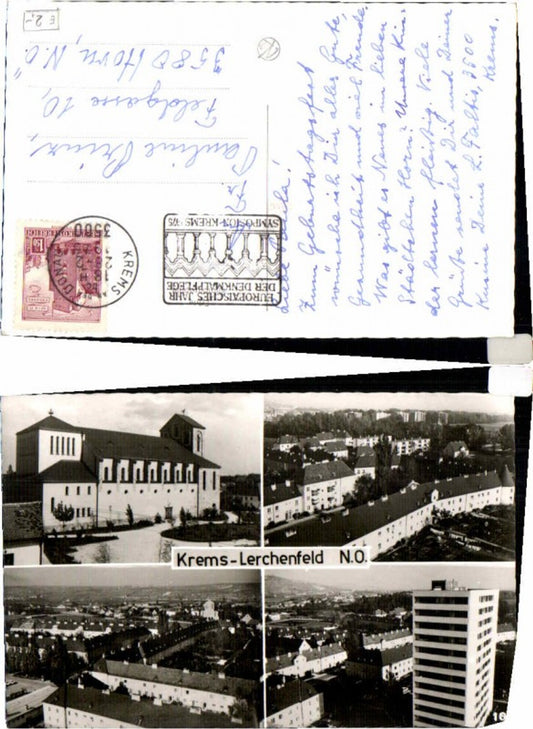 E 2,-
Pauline Prinz,
Feldgasse 10,
3580 Horn, N.Ö.
KREMS
3500
DONAU
REPUBLIK ÖSTERREICH
EUROPÄISCHES JAHR
DER DENKMALPFLEGE
SYMPOSION-KREMS '75
Zum Geburtstagsfest
wünsche ich Dir alles Gute,
Gesundheit und viel Freude.
Was gibt es Neues im lieben
Städtchen Horn? Unsere Kin-
der lernen fleißig. Viele
Grüße sendet Dir und Deiner
Kusine Deine L. Faltis, 3500
Krems.
Krems-Lerchenfeld N.O.